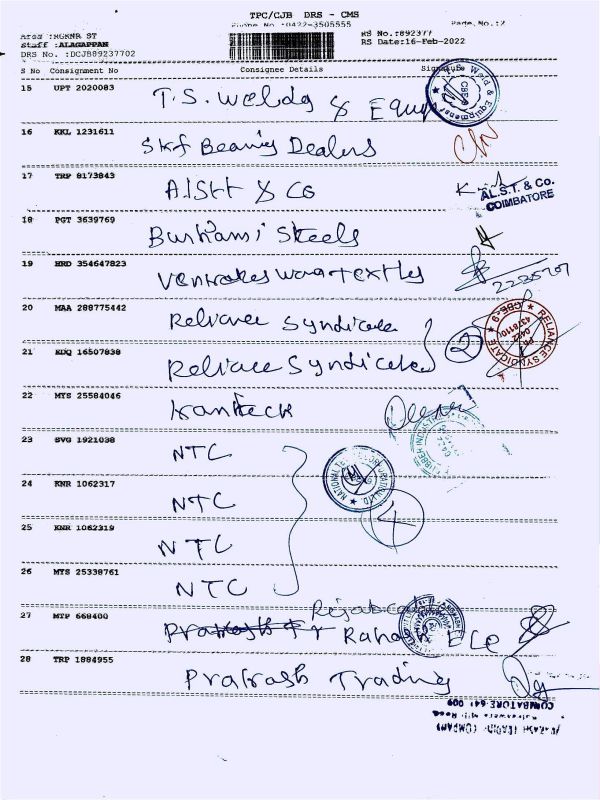 TPC/CJB DRS - CMS
Phone No :0422-3505555 Page. No.:2
Area :RGKNR ST RS No.:892377
Staff :ALAGAPPAN RS Date:16-Feb-2022
DRS No. :DCJB89237702
S No Consignment No Consignee Details Signature
15 UPT 2020083 T.S. Welds & Equip
16 KKL 1231611 Skf Bearing Dealers
17 TRP 8173843 AlSt & Co
AL.S.T. & Co.
COIMBATORE
18 PGT 3639769 Steels
19 HRD 354647823
20 MAA 288775442 Reliance Syndicate
21 KUQ 16507838 Reliance Syndicate 2
RELIANCE SYNDICATE
22 MYS 25584046
23 SVG 1921038 NTC
24 KNR 1062317 NTC
4
25 KNR 1062319 NTC
26 MYS 25338761 NTC
27 MTP 668400
28 TRP 1884955 Prakash Trading
COIMBATORE-641 009